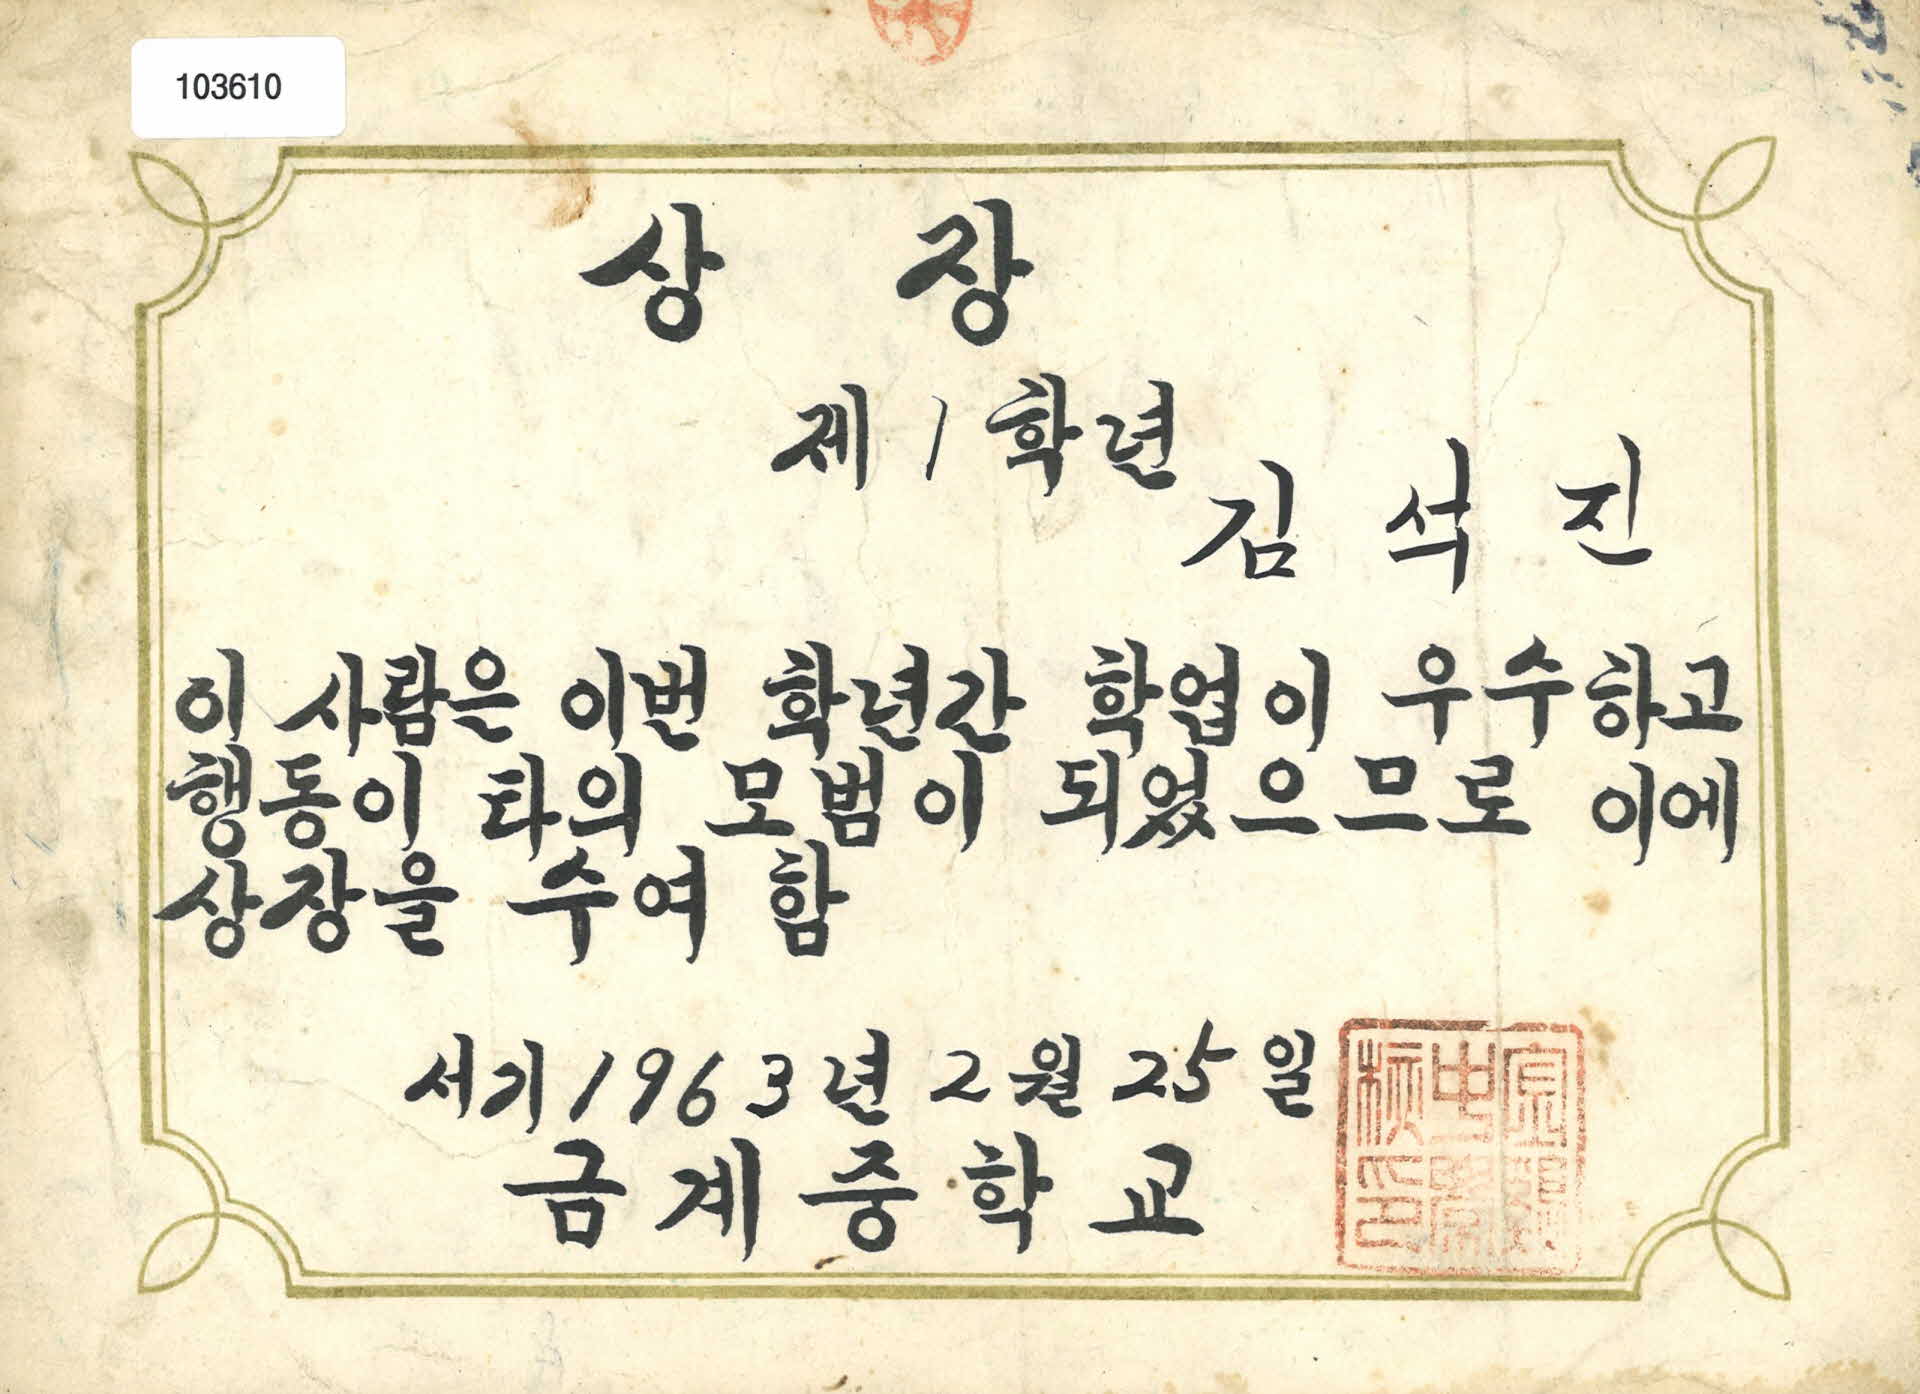 103610
상 장
제1학년
김 석 진
이 사람은 이번 학년간 학업이 우수하고
행동이 타의 모범이 되었으므로 이에
상장을 수여 함
서기 1963년 2월 25일
금계중학교